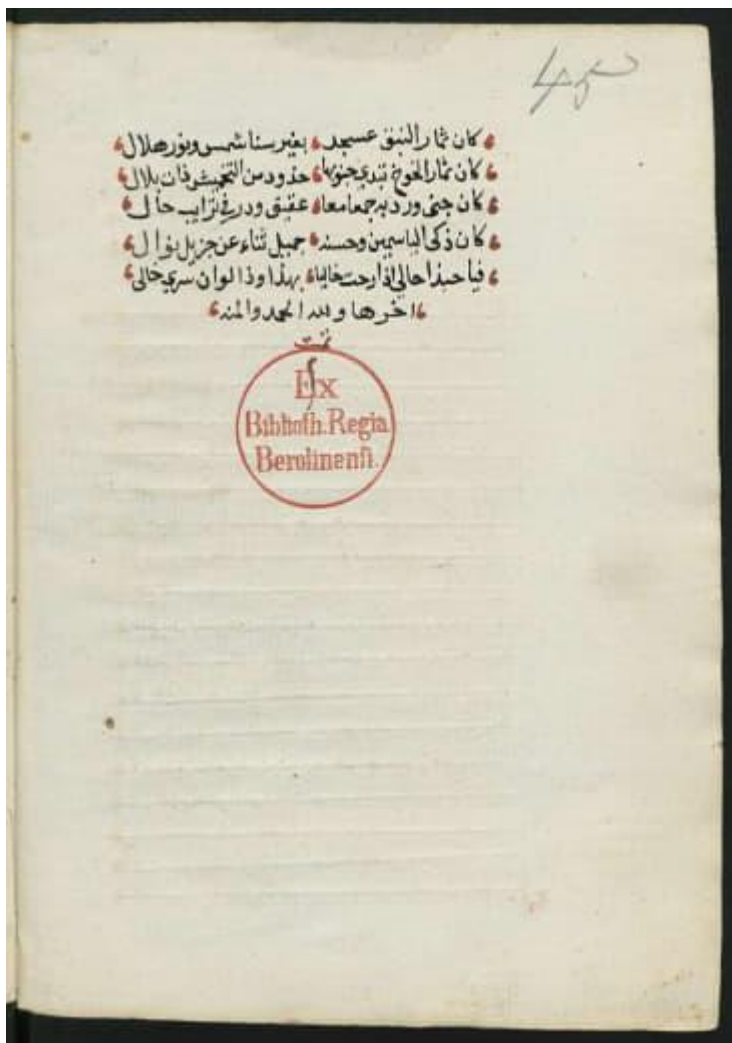 45
كان ثمار النبق عسجد بغير سنا شمس ونور هلال
كان ثمار الخوخ تبدي جنوبها خدود من التخميش فات بلال
كان جنى ورد به جمعا معا عقيق ودر في ترايب حال
كان ذكى الياسمين وحسنه جميل ثناء عن جزيل نوال
فيا حبذا حالي اذا رحت خاليا بهذا وذا لوان سري خالى
اخرها ولله الحمد والمنه
تمت
Ex
Biblioth. Regia
Berolinenſi.